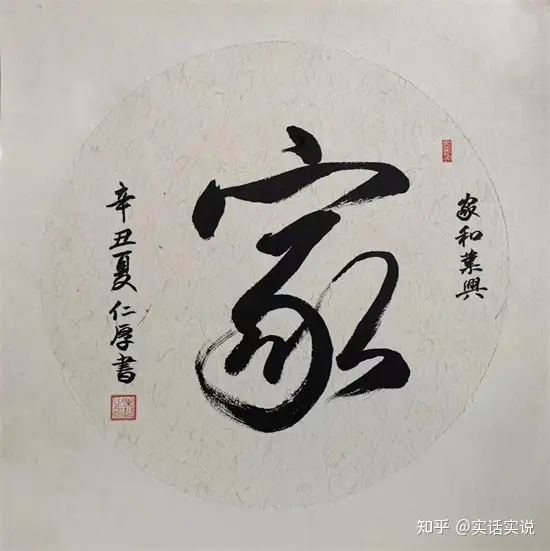 家和業興
家
辛丑夏仁厚書
知乎 @实话实说